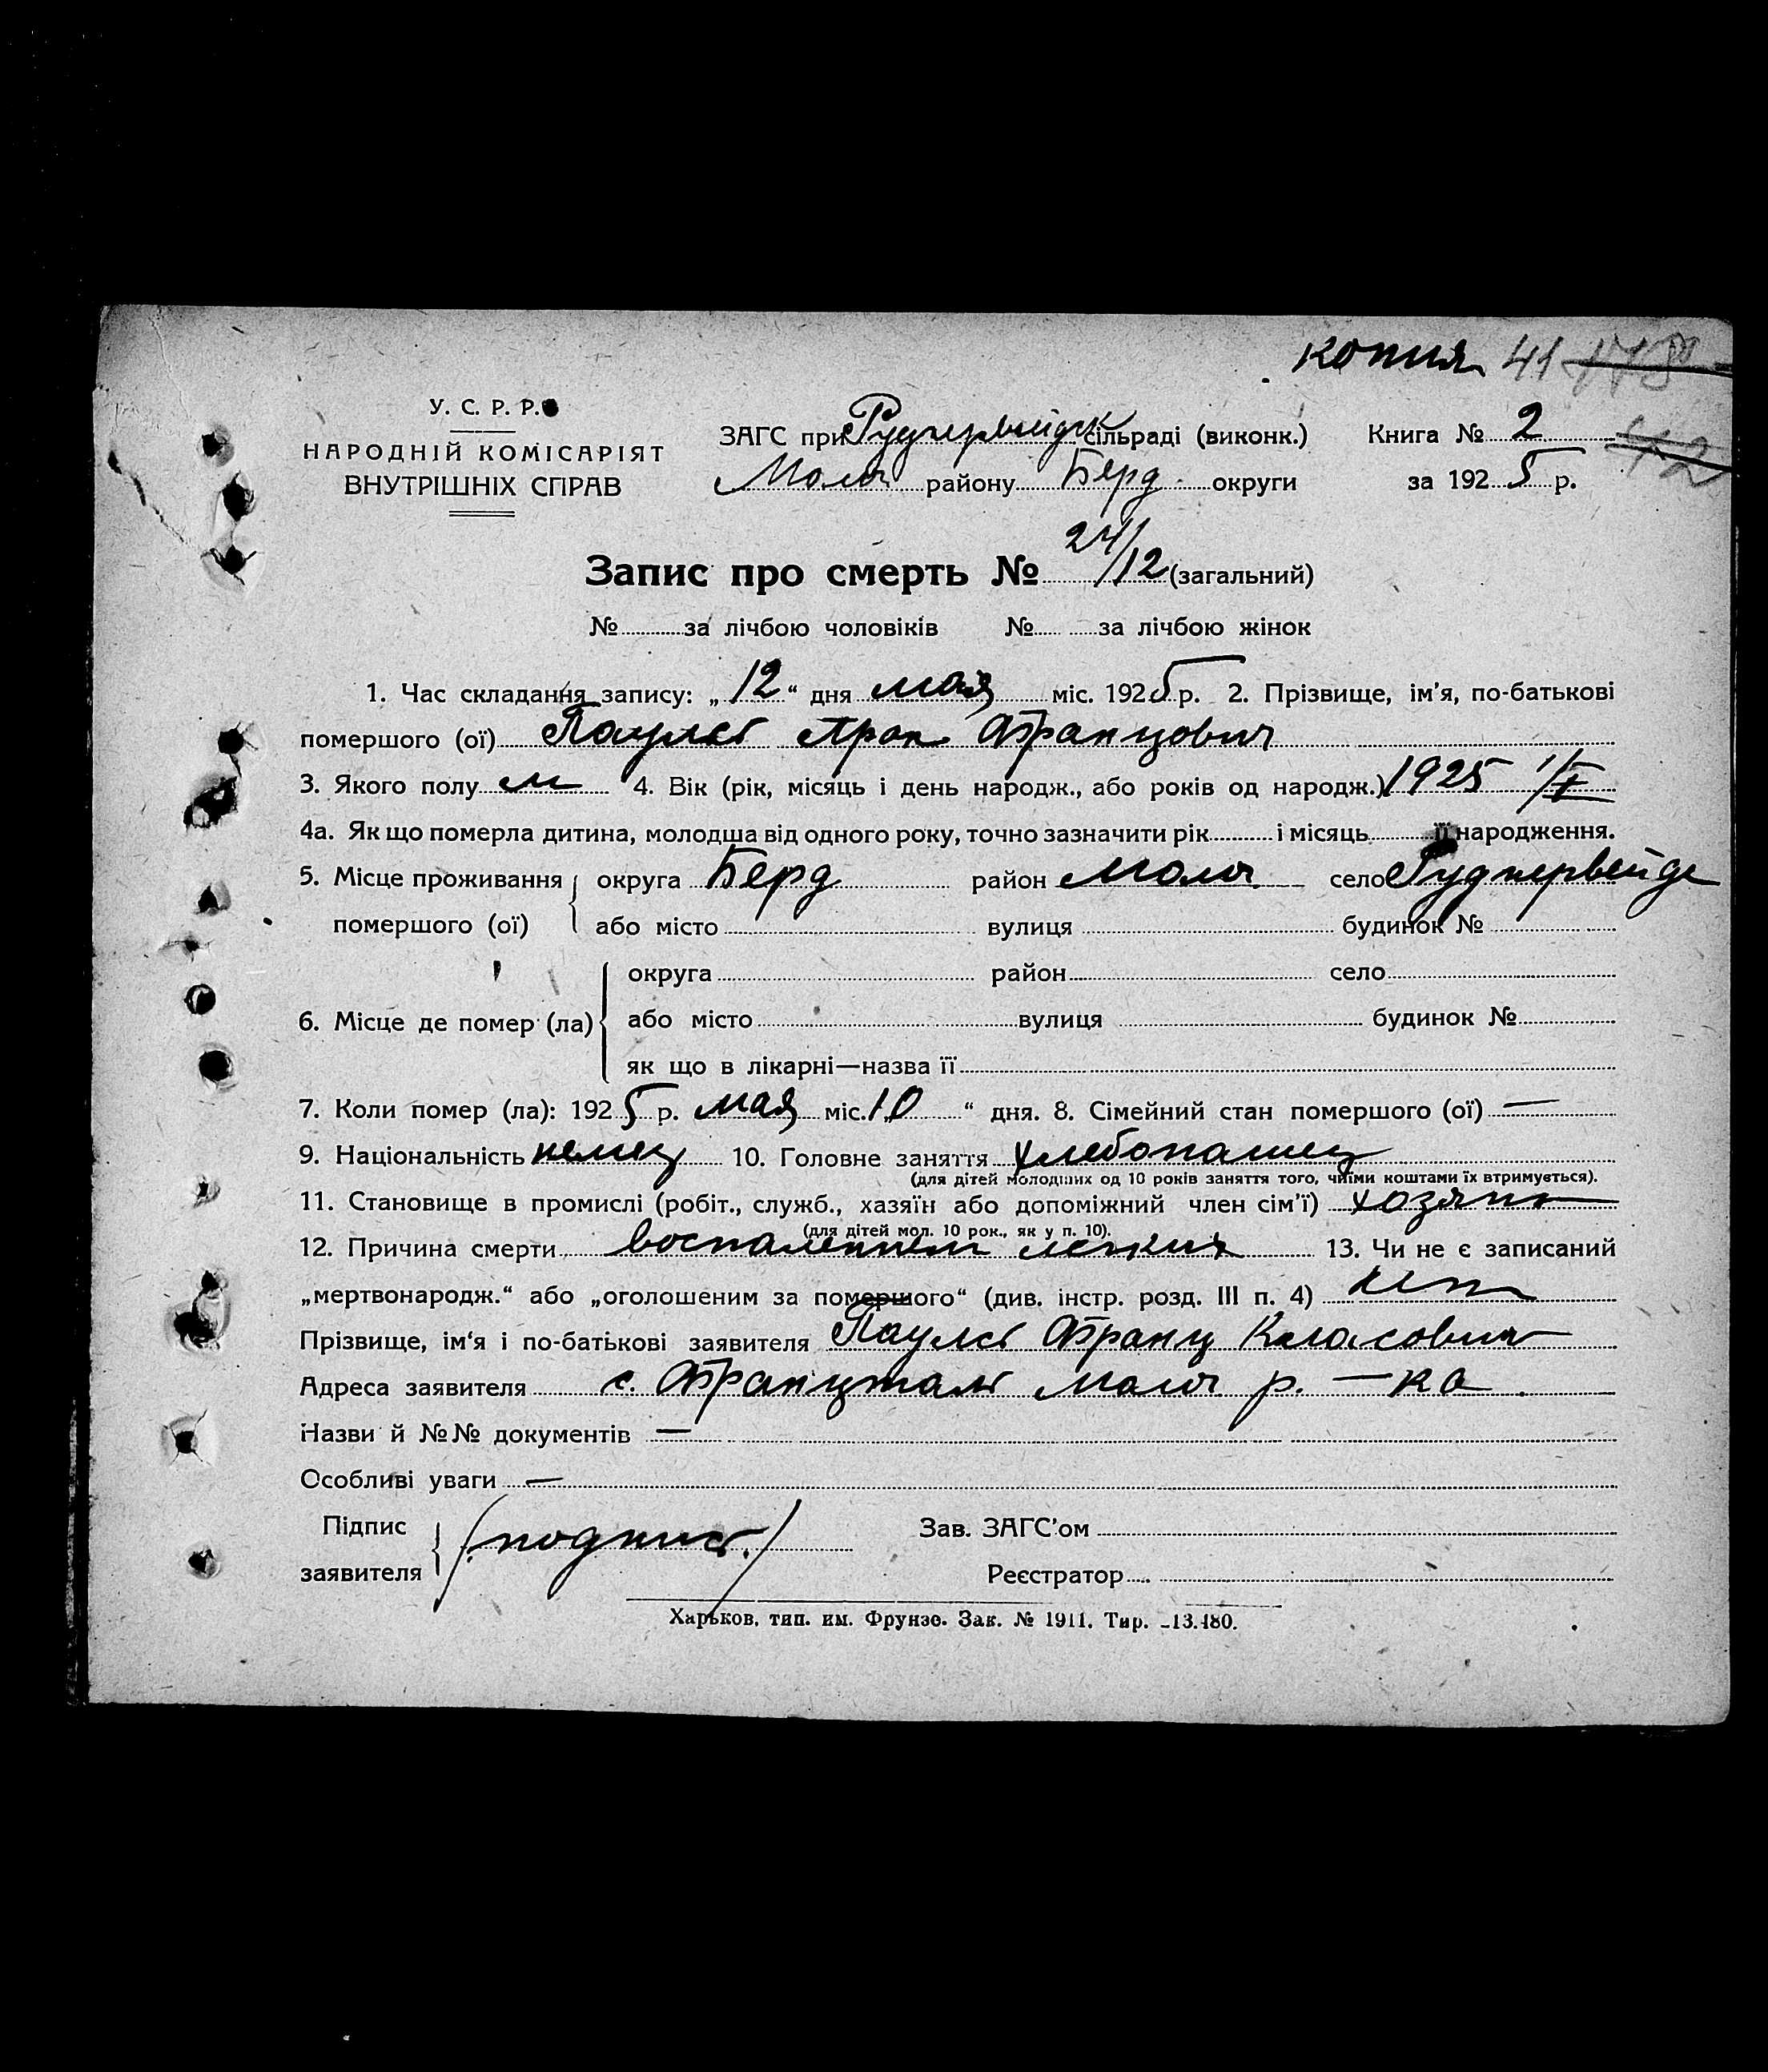 копия 41 178
У. С. Р. Р.
НАРОДНІЙ КОМІСАРІЯТ
ВНУТРІШНІХ СПРАВ
ЗАГС при Руднервейдск сільраді (виконк.) Книга № 2
Молоч району Берд округи за 1925 р.
112
Запис про смерть № 24/12 (загальний)
№ за лічбою чоловіків № за лічбою жінок
1. Час складання запису: „12“ дня мая міс. 1925 р. 2. Прізвище, ім'я, по-батькові
помершого (ої) Паульс Арон Францович
3. Якого полу м 4. Вік (рік, місяць і день народж., або років од народж.) 1925 1/V
4а. Як що померла дитина, молодша від одного року, точно зазначити рік і місяць її народження.
5. Місце проживання округа Берд район Молоч село Руднервейде
помершого (ої) або місто вулиця будинок №
округа район село
6. Місце де помер (ла) або місто вулиця будинок №
як що в лікарні—назва її
7. Коли помер (ла): 1925 р. мая міс. „10“ дня. 8. Сімейний стан помершого (ої) —
9. Національність немец 10. Головне заняття хлебопашец
(для дітей молодших од 10 років заняття того, чиїми коштами їх втримується).
11. Становище в промислі (робіт., служб., хазяїн або допоміжний член сім'ї) хозяин
(для дітей мол. 10 рок., як у п. 10).
12. Причина смерти воспалением легких 13. Чи не є записаний
„мертвонародж.“ або „оголошеним за помершого“ (див. інстр. розд. III п. 4) нет
Прізвище, ім'я і по-батькові заявителя Паульс Франц Класович
Адреса заявителя с. Францталь Молоч р. — ка
Назви й №№ документів —
Особливі уваги —
Підпис
заявителя (подпись) Зав. ЗАГС'ом
Реєстратор
Харьков, тип. им. Фрунзе. Зак. № 1911. Тир. 13.480.